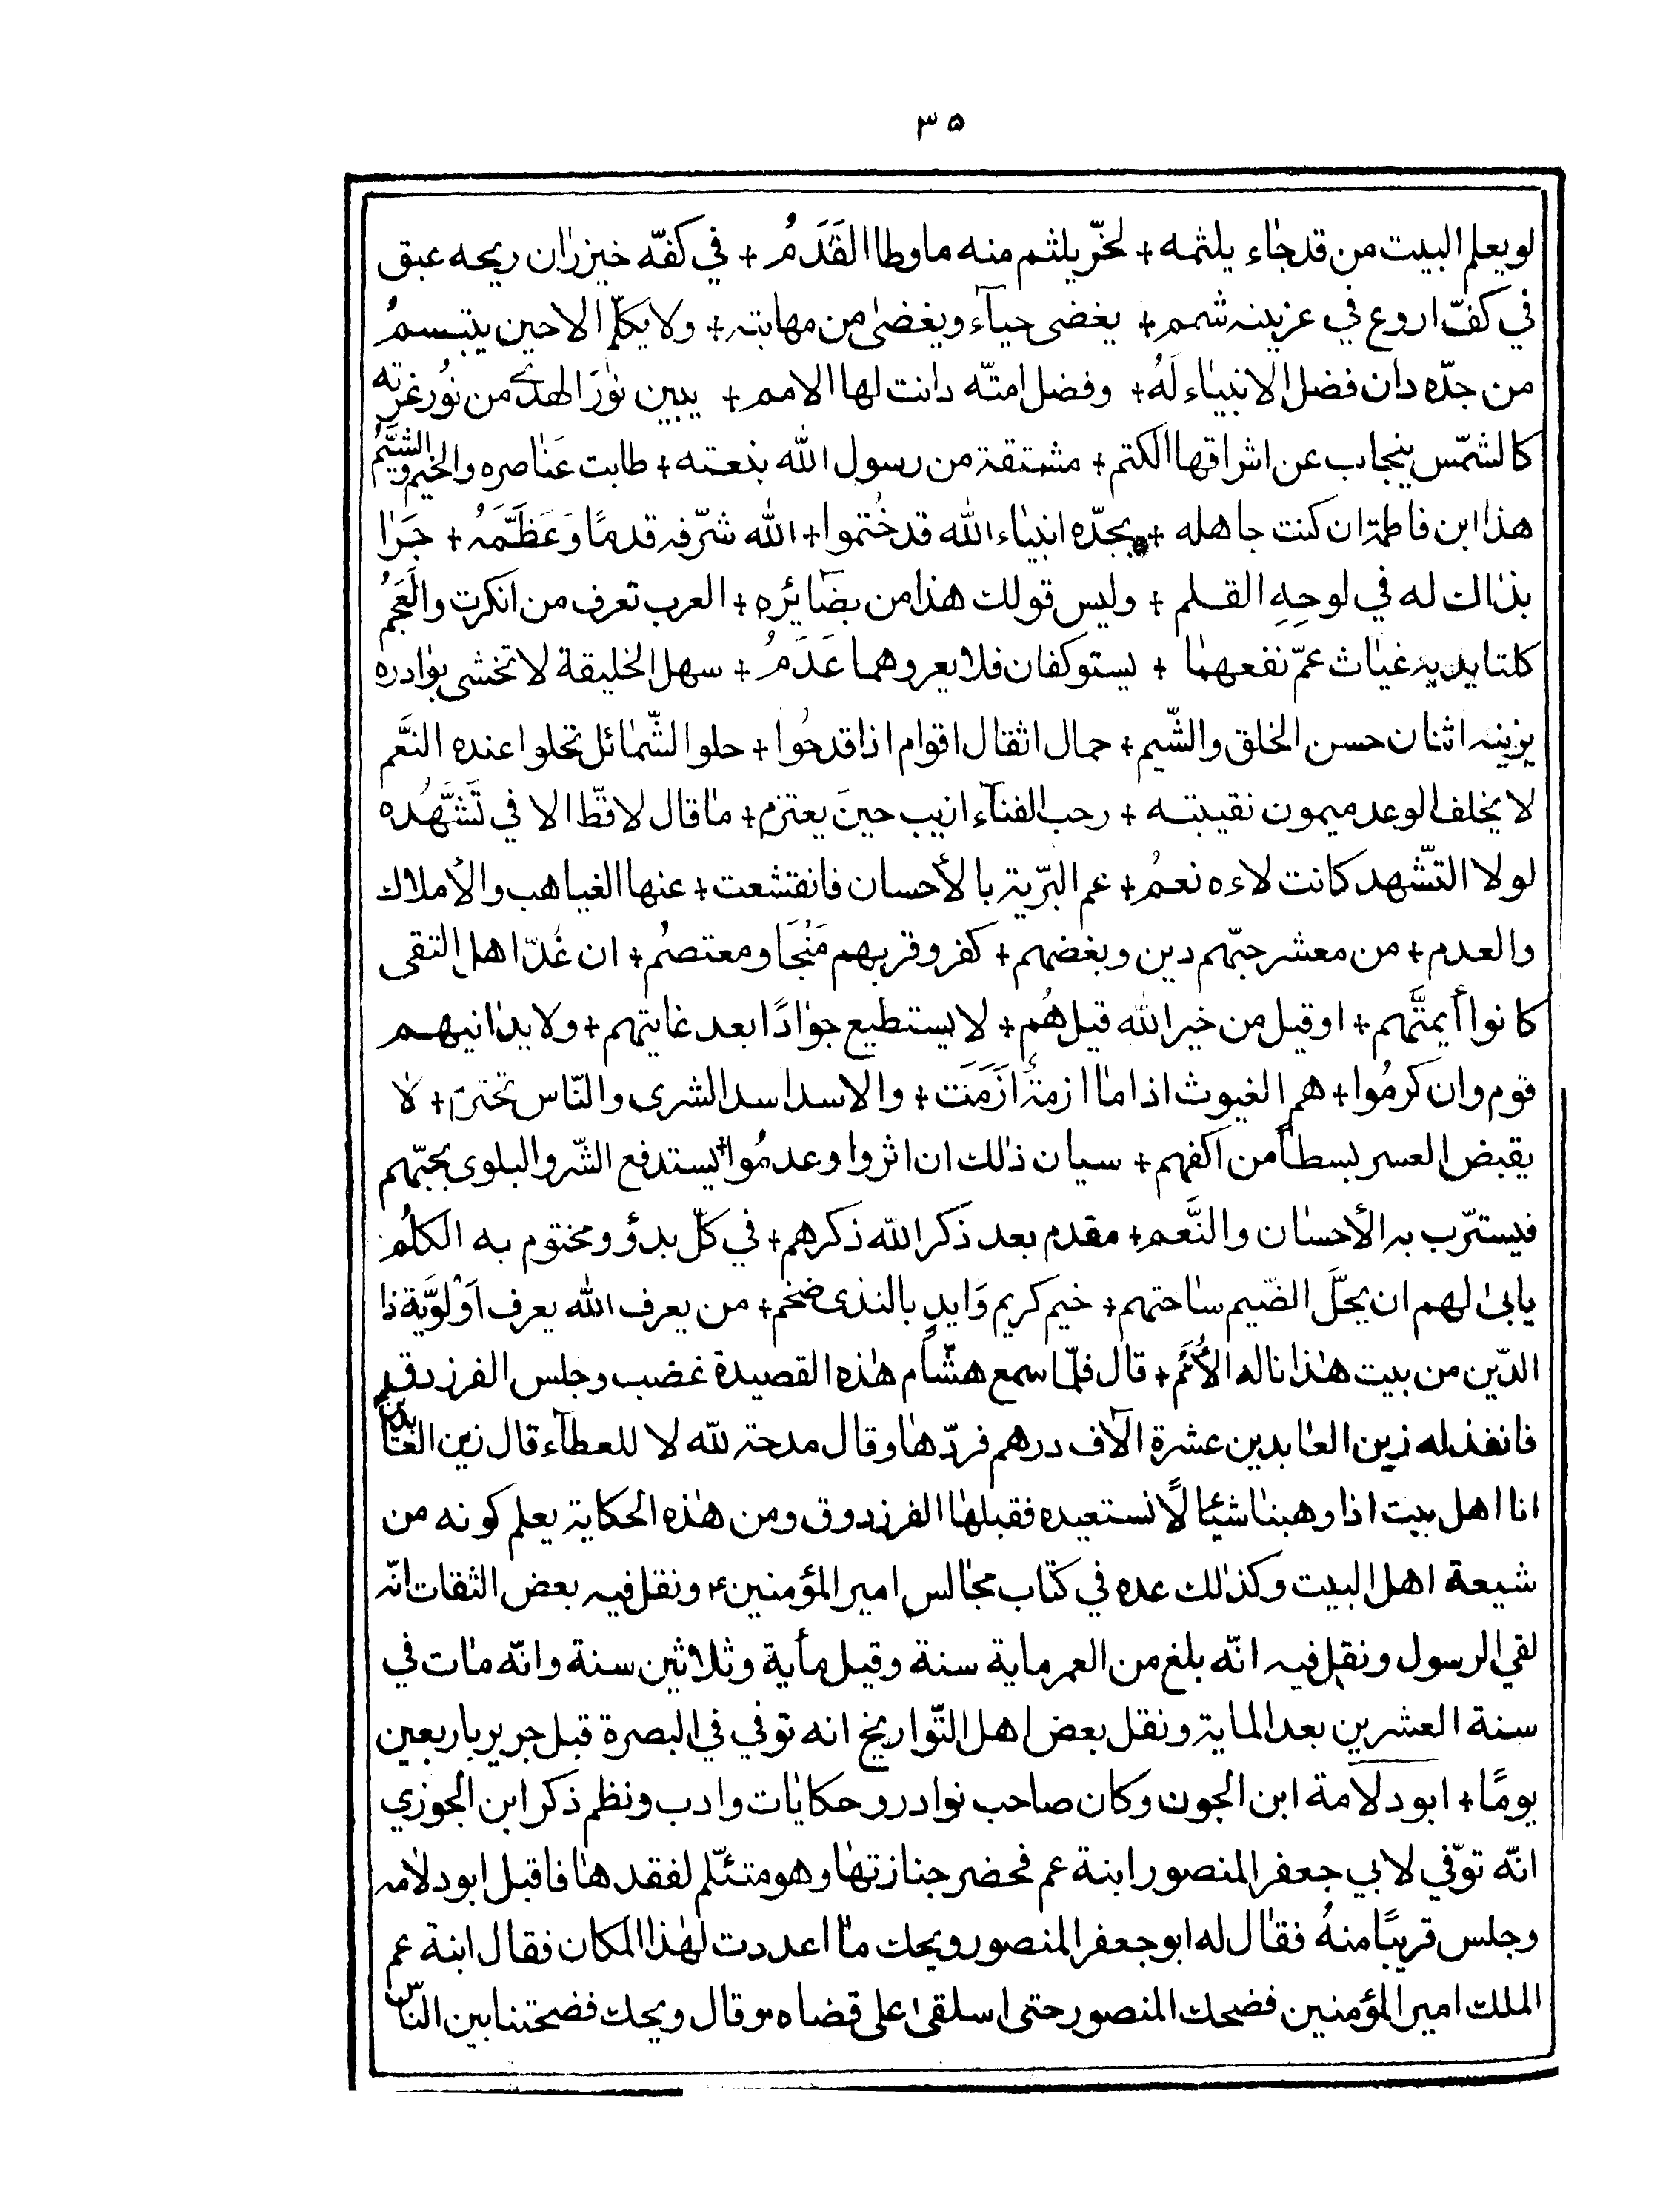 ٣٥
لو يعلم البيت من قد جاء يلثمه + لخرّ يلثم منه ما وطا القَدَمُ + في كفّه خيزران ريحه عبق
في كفّ اروع في عزينه شمم + يغضى حيآء ويغضى من مهابته + ولا يكلّم الا حين يبتسمُ
من جدّه دان فضل الانبياء لَهُ + وفضل امتّه دانت لها الامم + يبين نوَر الهدى من نُور غرته
كالشمّس ينجاب عن اشراقها الكتم + مشتقة من رسول الله بذعته + طابت عناصره والخيم والشيَّمُ
هذا ابن فاطمة ان كنت جاهله + بجدّه انبياء الله قد خُتموا + الله شرّفه قدمًا وَعَظَّمَهُ + جَرا
بذالك له في لوحِهِ القلم + وليس قولك هذا من بضآئره + العرب تعرف من انكرت والعَجَمُ
كلتا يديه غياث عمّ نفعهما + يستوكفان فلا يعروهما عَدَمُ + سهل الخليقة لا تخشى بوادره
يزينه اثنان حسن الخلق والشّيم + حمال اثقال اقوام اذا قدحُوا + حلو الشّمائل تحلوا عنده النَّعم
لا يخلف الوعد ميمون نقيبته + رحب الفنآء اريب حينَ يعتزم + ما قال لا قطّ الا في تَشَهَّدُه
لولا التّشهد كانت لاءه نعمُ + عم البرّية بالأحسان فانقتشعت + عنها الغياهب والأملاك
والعدم + من معشر حبّهم دين وبغضهم + كفر وقربهم مَنْجَا ومعتصمُ + ان عُدّ اهل التقى
كانوا أيمتَّهم + او قيل من خير الله قيل هُم + لا يستطيع جوادًا بعد غايتهم + ولا يدانيهم
قوم وان كرمُوا + هم الغيوث اذا ما ازمةٌ اَزَمَت + والاسد اسد الشرى والنّاس تحترم + لا
يقبض العسر بسطاً من اكفهم + سيان ذالك ان اثروا وعدمُوا + يستدفع الشّر والبلوى بحبّهم
فيسترّب به الأحسان والنَّعم + مقدم بعد ذكر الله ذكرهم + في كلّ بدؤ ومختوم به الكلُم
يابى لهم ان يحّلَ الضّيم ساحتهم + خيم كريم وَايدٍ بالندى ضخم + من يعرف الله يعرف اَوْلَوَّية ذا
الدّين من بيت هذا ناله الأُمَم + قال فلّما سمع هشّام هذه القصيدة غضب وجلس الفرزدق
فانفذ له زين العابدين عشرة آلاف درهم فردّها وقال مدحته لله لا للعطآء قال زين العابدين
انا اهل بيت اذا وهبنا شيئا لا نستعيده فقبلها الفرزدوق ومن هذه الحكاية يعلم كونه من
شيعة اهل البيت وكذلك عده في كتاب مجالس امير المؤمنين ء ونقل فيه بعض الثقات انّه
لقي الرسول ونقل فيه انّه بلغ من العمر ماية سنة وقيل مأية وثلاثين سنة وانّه مات في
سنة العشرين بعد الماية ونقل بعض اهل التّواريخ انه توفي في البصرة قبل جرير باربعين
يومًا + ابو دلامة ابن الجون وكان صاحب نوادر وحكايات وادب ونظم ذكر ابن الجوزي
انّه توّفي لابي جعفر المنصور ابنة عم فحضر جنازتها وهو متئلّم لفقدها فاقبل ابو دلامه
وجلس قريبًا منهُ فقال له ابو جعفر المنصور ويحك ما اعددت لهذا المكان فقال ابنة عم
الملك امير المؤمنين فضحك المنصور حتى اسلقى على قضاه وقال ويحك فضحتنا بين النّاس